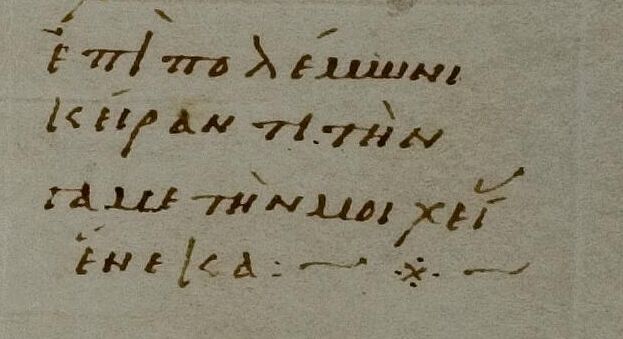 ἐπὶ πολέμωνι
κείραντι τὴν
γαμετὴν μοιχεί
ἕνεκα :~ ※ ~